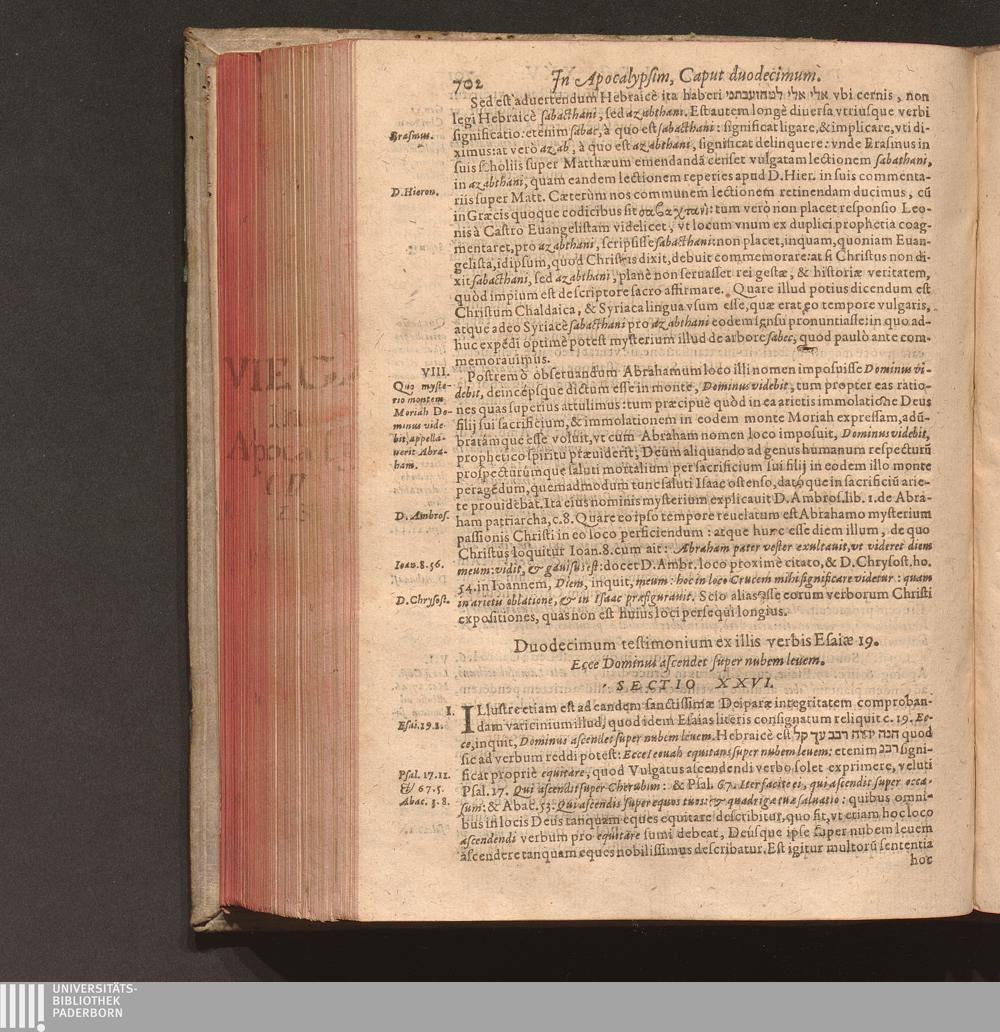 702 In Apocalypsim, Caput duodecimum.
Sed est aduertendum Hebraicè ita haberi אלי אלי vbi cernis, non
legi Hebraicè sabacthani, sed azabthani. Est autem longè diuersa vtriusque verbi
Erasmus.
significatio: etenim sabac, à quo est sabacthani: significat ligare, & implicare, vti di-
ximus: at verò azab, à quo est azabthani, significat delinquere: vnde Erasmus in
suis scholiis super Matthæum emendandā censet vulgatam lectionem sabathani,
D. Hieron.
in azabthani, quam eandem lectionem reperies apud D. Hier. in suis commenta-
riis super Matt. Cæterùm nos communem lectionem retinendam ducimus, cū
in Græcis quoque codicibus sit σαβαχτανὶ: tum verò non placet responsio Leo-
nis à Castro Euangelistam videlicet, vt locum vnum ex duplici prophetia coag-
mentaret, pro azabthani, scripsisse sabacthani: non placet, inquam, quoniam Euan-
gelista, id ipsum, quod Christus dixit, debuit commemorare: at si Christus non di-
xit sabacthani, sed azabthani, planè non seruasset rei gestæ, & historiæ veritatem,
quòd impium est de scriptore sacro affirmare. Quare illud potius dicendum est
Christum Chaldaica, & Syriaca lingua vsum esse, quæ erat eo tempore vulgaris,
atque adeo Syriacè sabacthani pro azabthani eodem sensu pronuntiasse: in quo ad-
huc expēdi optimè potest mysterium illud de arbore sabec, quod paulò ante com-
memorauimus.
VIII.
Quo myste-
rio montem
Moriah Do-
minus vide-
bit, appella-
uerit Abra-
ham.
Postremò obseruandum Abrahamum loco illi nomen imposuisse Dominus vi-
debit, deincépsque dictum esse in monte, Dominus videbit, tum propter eas ratio-
nes quas superius attulimus: tum præcipuè quòd in ea arietis immolatione Deus
filij sui sacrificium, & immolationem in eodem monte Moriah expressam, adū-
bratámque esse voluit, vt cum Abraham nomen loco imposuit, Dominus videbit,
prophetico spiritu præuiderit; Deum aliquando ad genus humanum respecturū
prospecturúmque saluti mortalium per sacrificium sui filij in eodem illo monte
peragēdum, quemadmodum tunc saluti Isaac ostenso, datóque in sacrificiū arie-
te prouidebat. Ita eius nominis mysterium explicauit D. Ambros. lib. 1. de Abra-
D. Ambros.
ham patriarcha, c. 8. Quare eo ipso tempore reuelatum est Abrahamo mysterium
passionis Christi in eo loco perficiendum: atque hunc esse diem illum, de quo
Christus loquitur Ioan. 8. cum ait: Abraham pater vester exultauit, vt videret diem
Ioan. 8. 56.
meum: vidit, & gauisus est: docet D. Ambr. loco proximè citato, & D. Chrysost. ho.
54. in Ioannem, Diem, inquit, meum: hoc in loco Crucem mihi significare videtur: quam
D. Chrysost.
in arietis oblatione, & in Isaac præfigurauit. Scio alias esse eorum verborum Christi
expositiones, quas non est huius loci persequi longius.
Duodecimum testimonium ex illis verbis Esaiæ 19.
Ecce Dominus ascendet super nubem leuem.
SECTIO XXVI.
I.
ILlustre etiam est ad eandem sanctissimæ Deiparæ integritatem comproban-
Esai. 19. 1.
dam vaticinium illud, quod idem Esaias literis consignatum reliquit c. 19. Ec-
ce, inquit, Dominus ascendet super nubem leuem. Hebraicè est הנה יהוה רכב עך קל quod
sic ad verbum reddi potest: Ecce Ieouah equitans super nubem leuem: etenim רכב signi-
Psal. 17. 11.
& 67. 5.
Abac. 3. 8.
ficat propriè equitare, quod Vulgatus ascendendi verbo solet exprimere, veluti
Psal. 17. Qui ascendit super Cherubim: & Psal. 67. Iter facite ei, qui ascendit super occa-
sum: & Abac. 53. Qui ascendis super equos tuos: & quadrigæ tuæ saluatio: quibus omni-
bus in locis Deus tanquam eques equitare describitur, quo fit, vt etiam hoc loco
ascendendi verbum pro equitare sumi debeat, Deúsque ipse super nubem leuem
ascendere tanquam eques nobilissimus describatur. Est igitur multorū sententia
hoc
VIEGA
in
Apoca
UNIVERSITÄTS-
BIBLIOTHEK
PADERBORN